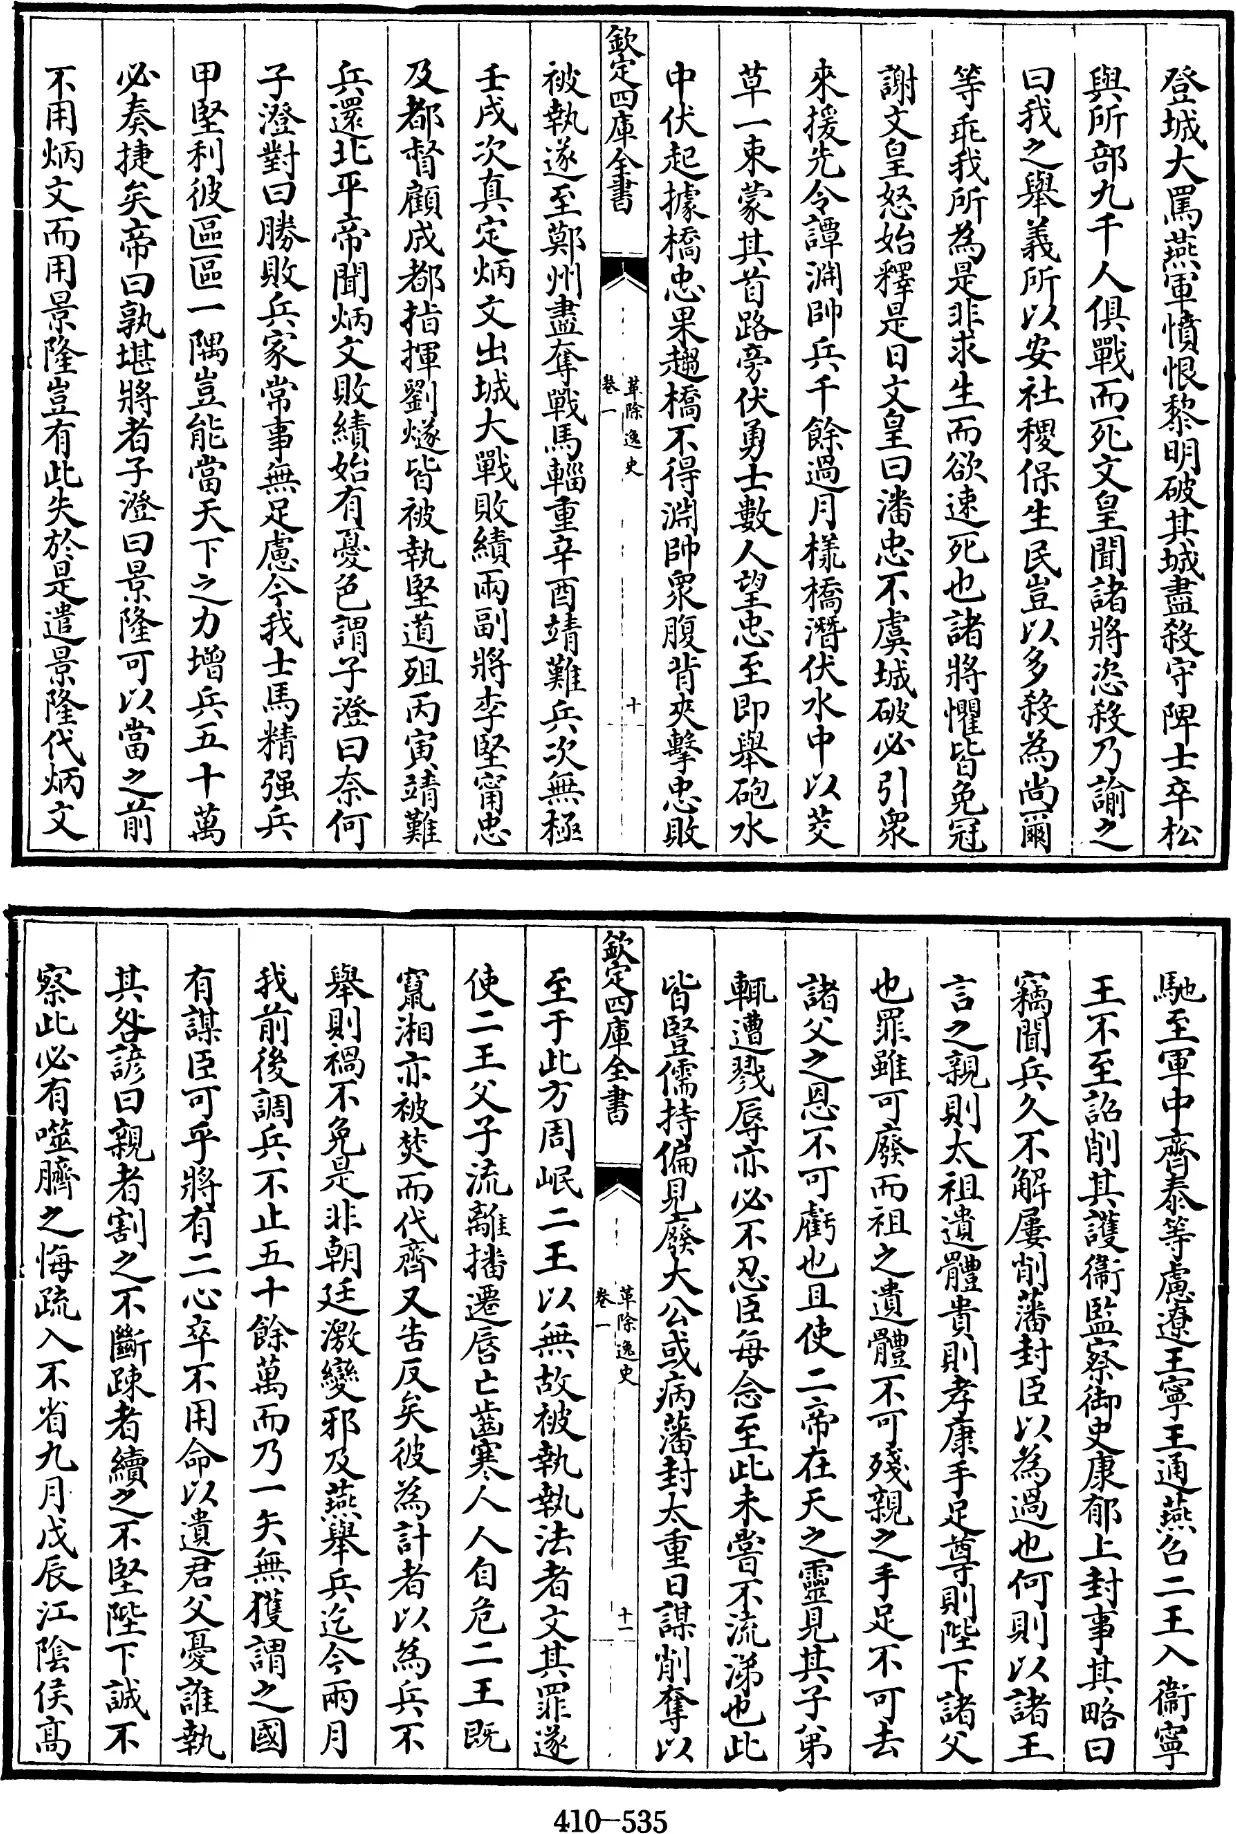 登城大罵燕軍憤恨黎明破其城盡殺守陴士卒松
與所部九千人俱戰而死文皇聞諸將恣殺乃諭之
曰我之舉義所以安社稷保生民豈以多殺為尚爾
等乖我所為是非求生而欲速死也諸將懼皆免冠
謝文皇怒始釋是日文皇曰潘忠不虞城破必引衆
來援先令譚淵帥兵千餘過月樣橋潛伏水中以茭
草一束蒙其首路旁伏勇士數人望忠至即舉砲水
中伏起據橋忠果趨橋不得淵帥衆腹背夾擊忠敗
欽定四庫全書
革除逸史
卷一
十
被執遂至鄭州盡奪戰馬輜重辛酉靖難兵次無極
壬戌次真定炳文出城大戰敗績兩副將李堅甯忠
及都督顧成都指揮劉燧皆被執堅道殂丙寅靖難
兵還北平帝聞炳文敗績始有憂色謂子澄曰奈何
子澄對曰勝敗兵家常事無足慮今我士馬精强兵
甲堅利彼區區一隅豈能當天下之力增兵五十萬
必奏捷矣帝曰孰堪將者子澄曰景隆可以當之前
不用炳文而用景隆豈有此失於是遣景隆代炳文
馳至軍中齊泰等慮遼王寧王通燕召二王入衞寧
王不至詔削其護衞監察御史康郁上封事其略曰
竊聞兵久不解屢削藩封臣以為過也何則以諸王
言之親則太祖遺體貴則孝康手足尊則陛下諸父
也罪雖可廢而祖之遺體不可殘親之手足不可去
諸父之恩不可虧也且使二帝在天之靈見其子弟
輒遭戮辱亦必不忍臣每念至此未嘗不流涕也此
皆豎儒持偏見廢大公或病藩封太重日謀削奪以
欽定四庫全書
革除逸史
卷一
十一
至于此方周岷二王以無故被執執法者文其罪遂
使二王父子流離播遷唇亡齒寒人人自危二王既
竄湘亦被焚而代齊又告反矣彼為計者以為兵不
舉則禍不免是非朝廷激變邪及燕舉兵迄今兩月
我前後調兵不止五十餘萬而乃一矢無獲謂之國
有謀臣可乎將有二心卒不用命以遺君父憂誰執
其咎諺曰親者割之不斷疎者續之不堅陛下誠不
察此必有噬臍之悔疏入不省九月戊辰江陰侯高
410-535